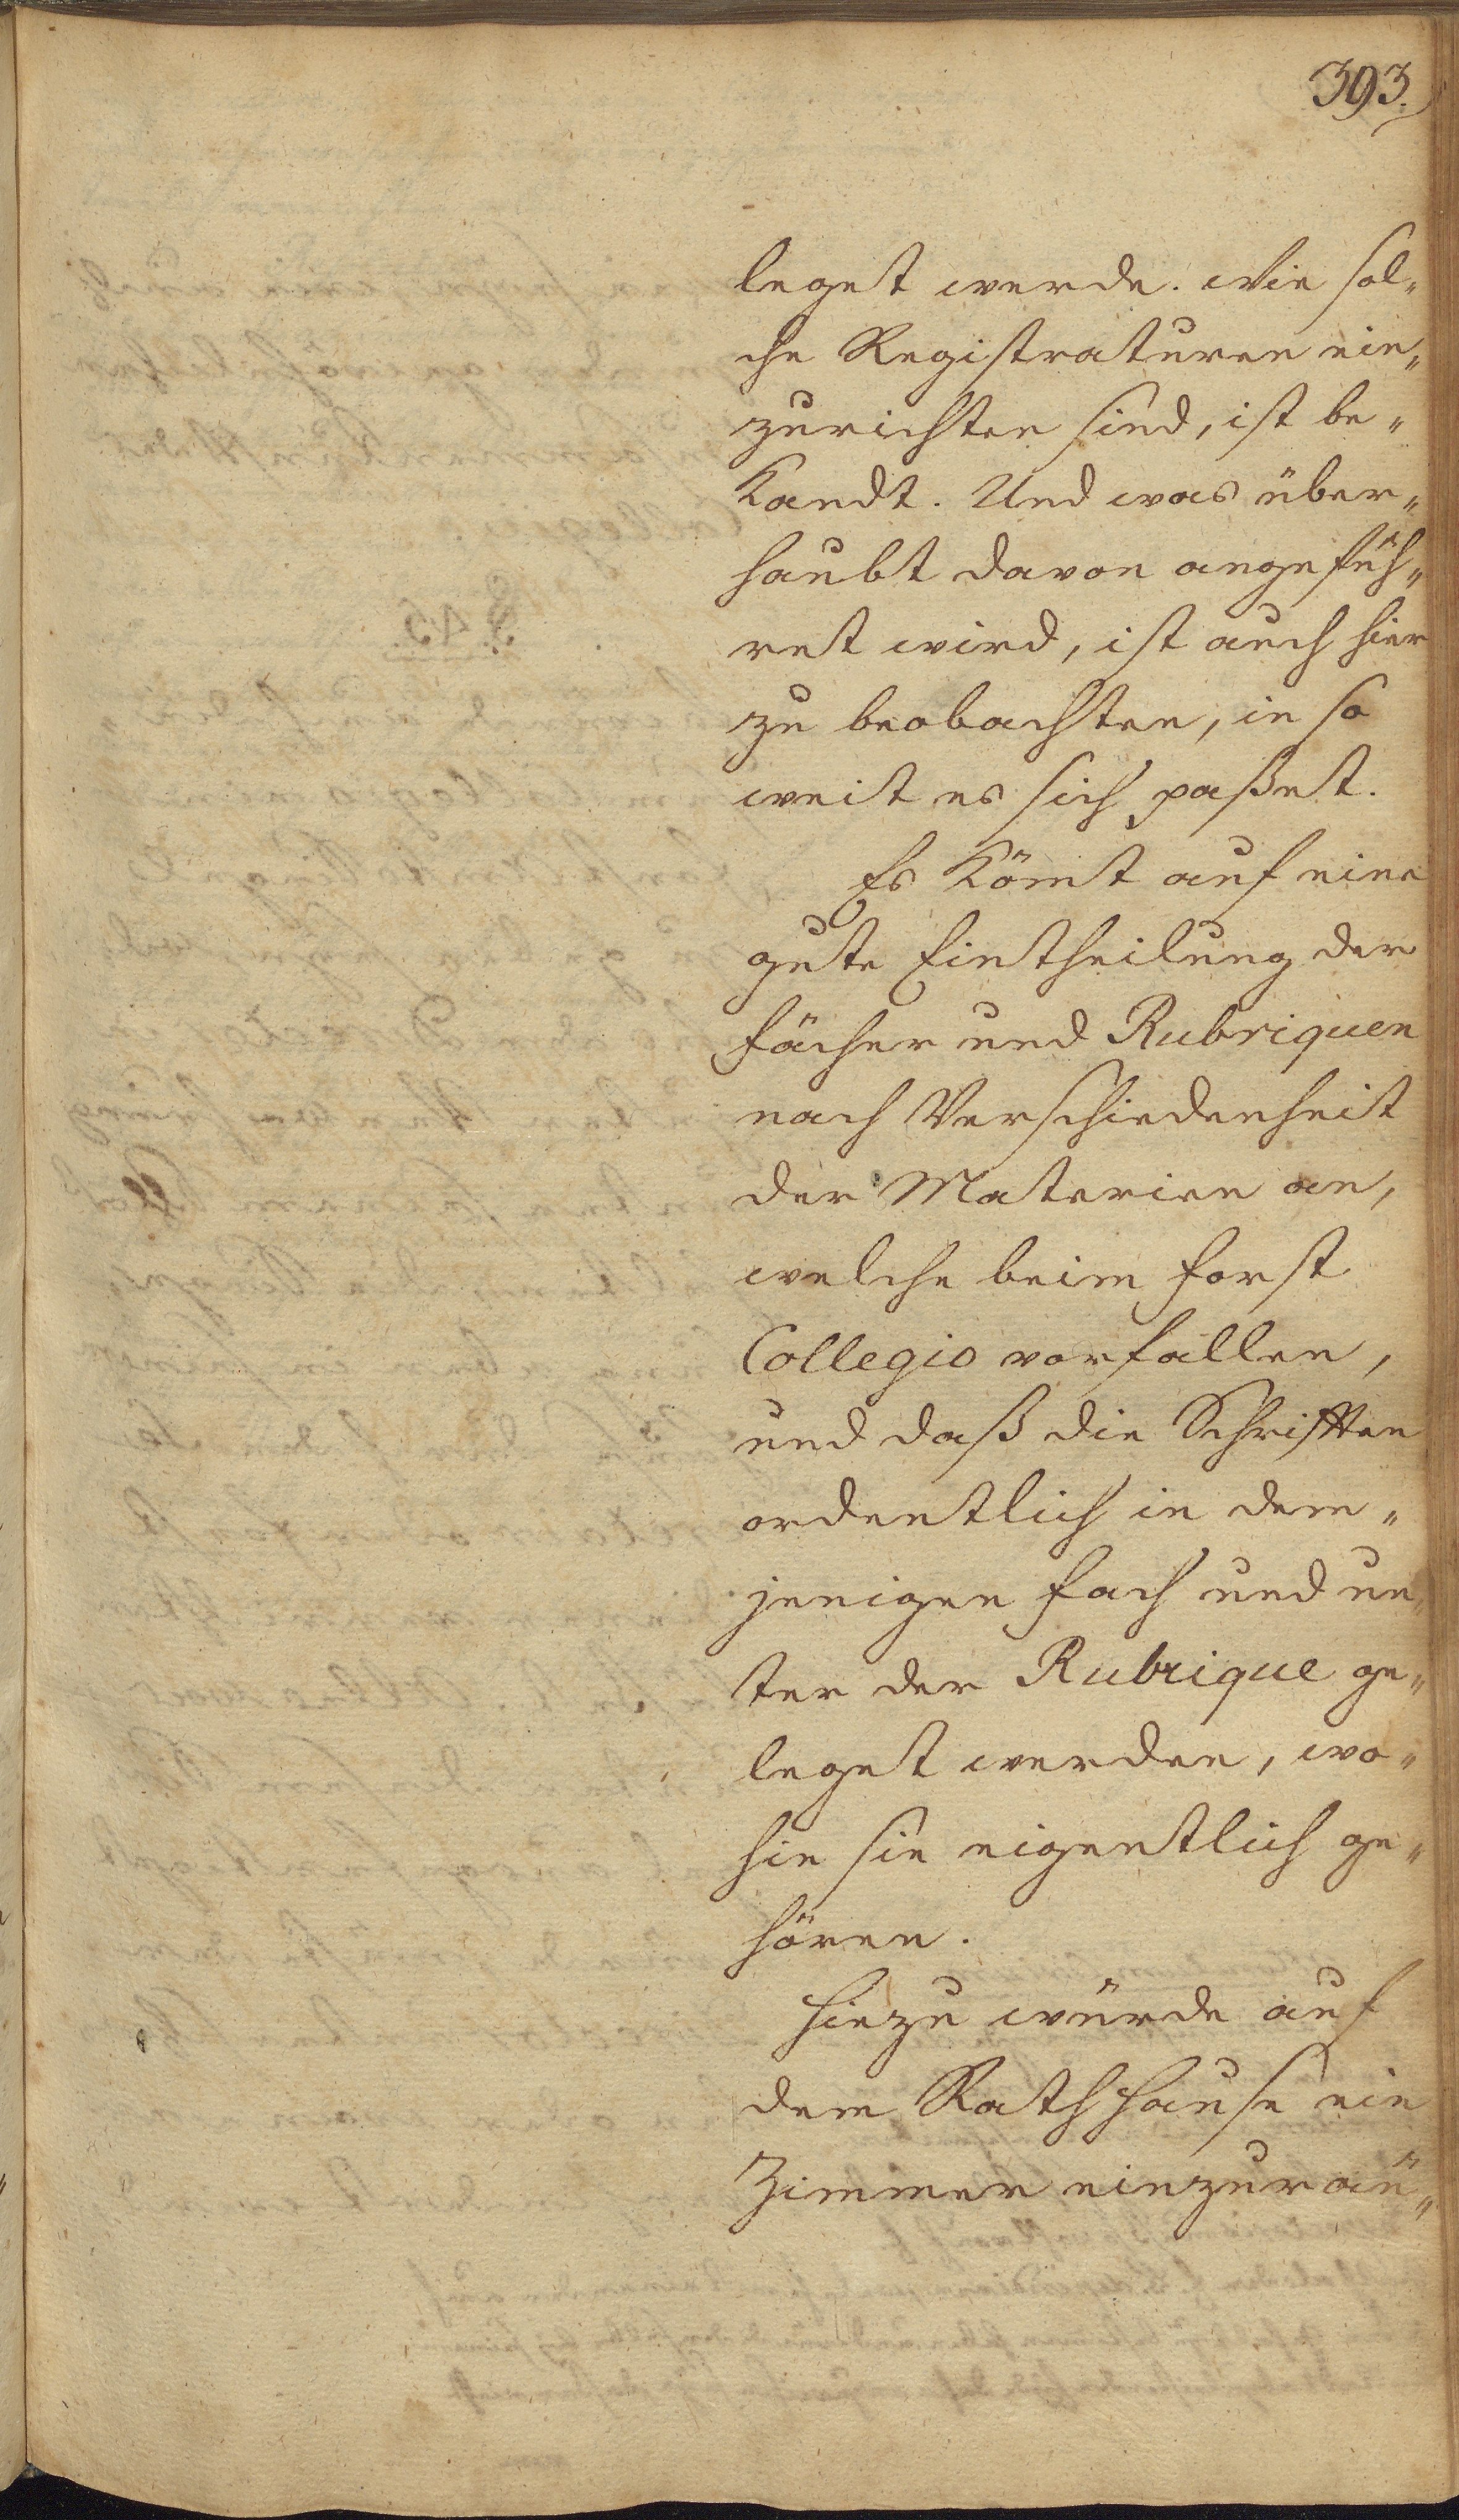 393.
leget werde. Wie sol„
che Registraturen ein„
zurichten sind, ist be„
kandt. Und was über„
haubt davon angefüh„
ret wird, ist auch hier
zu beobachten, in so
weit es sich paßet.
Es kömt auf eine
gute Eintheilung der
Fächer und Rubriquen
nach Verschiedenheit
der Materien an,
welche beim Forst
Collegio vorfallen,
und daß die Schrifften
ordentlich in dem„
jenigen Fach und un„
ter der Rubrique ge„
leget werden, wo„
hin sie eigentlich ge„
hören.
Hiezu würde auf
dem Rathhause ein
Zimmer einzuräu„